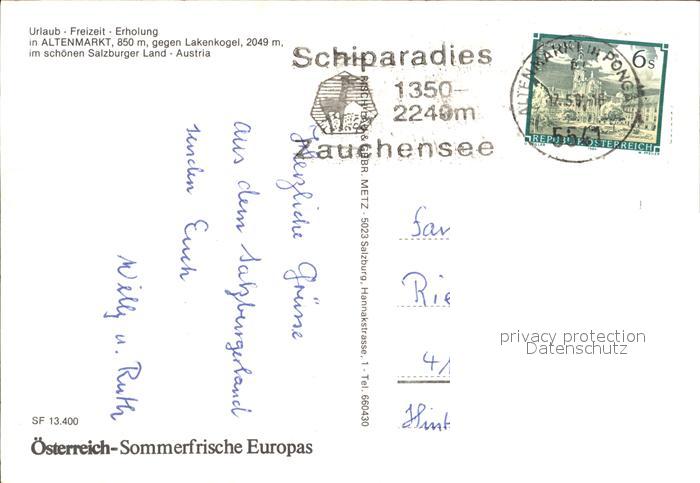 Urlaub - Freizeit - Erholung
in ALTENMARKT, 850 m, gegen Lakenkogel, 2049 m,
im schönen Salzburger Land - Austria
Schiparadies
1350-
2240m
Zauchensee
ALTENMARKT IM PONGAU
5541
6 s
REPUBLIK ÖSTERREICH
Herzliche Grüsse
aus dem Salzburgerland
senden Euch
Willy u. Ruth
GEBR. METZ - 5023 Salzburg, Hannakstrasse, 1 - Tel. 660430
Fam
Rie
4
Hint
privacy protection
Datenschutz
SF 13.400
Österreich-Sommerfrische Europas